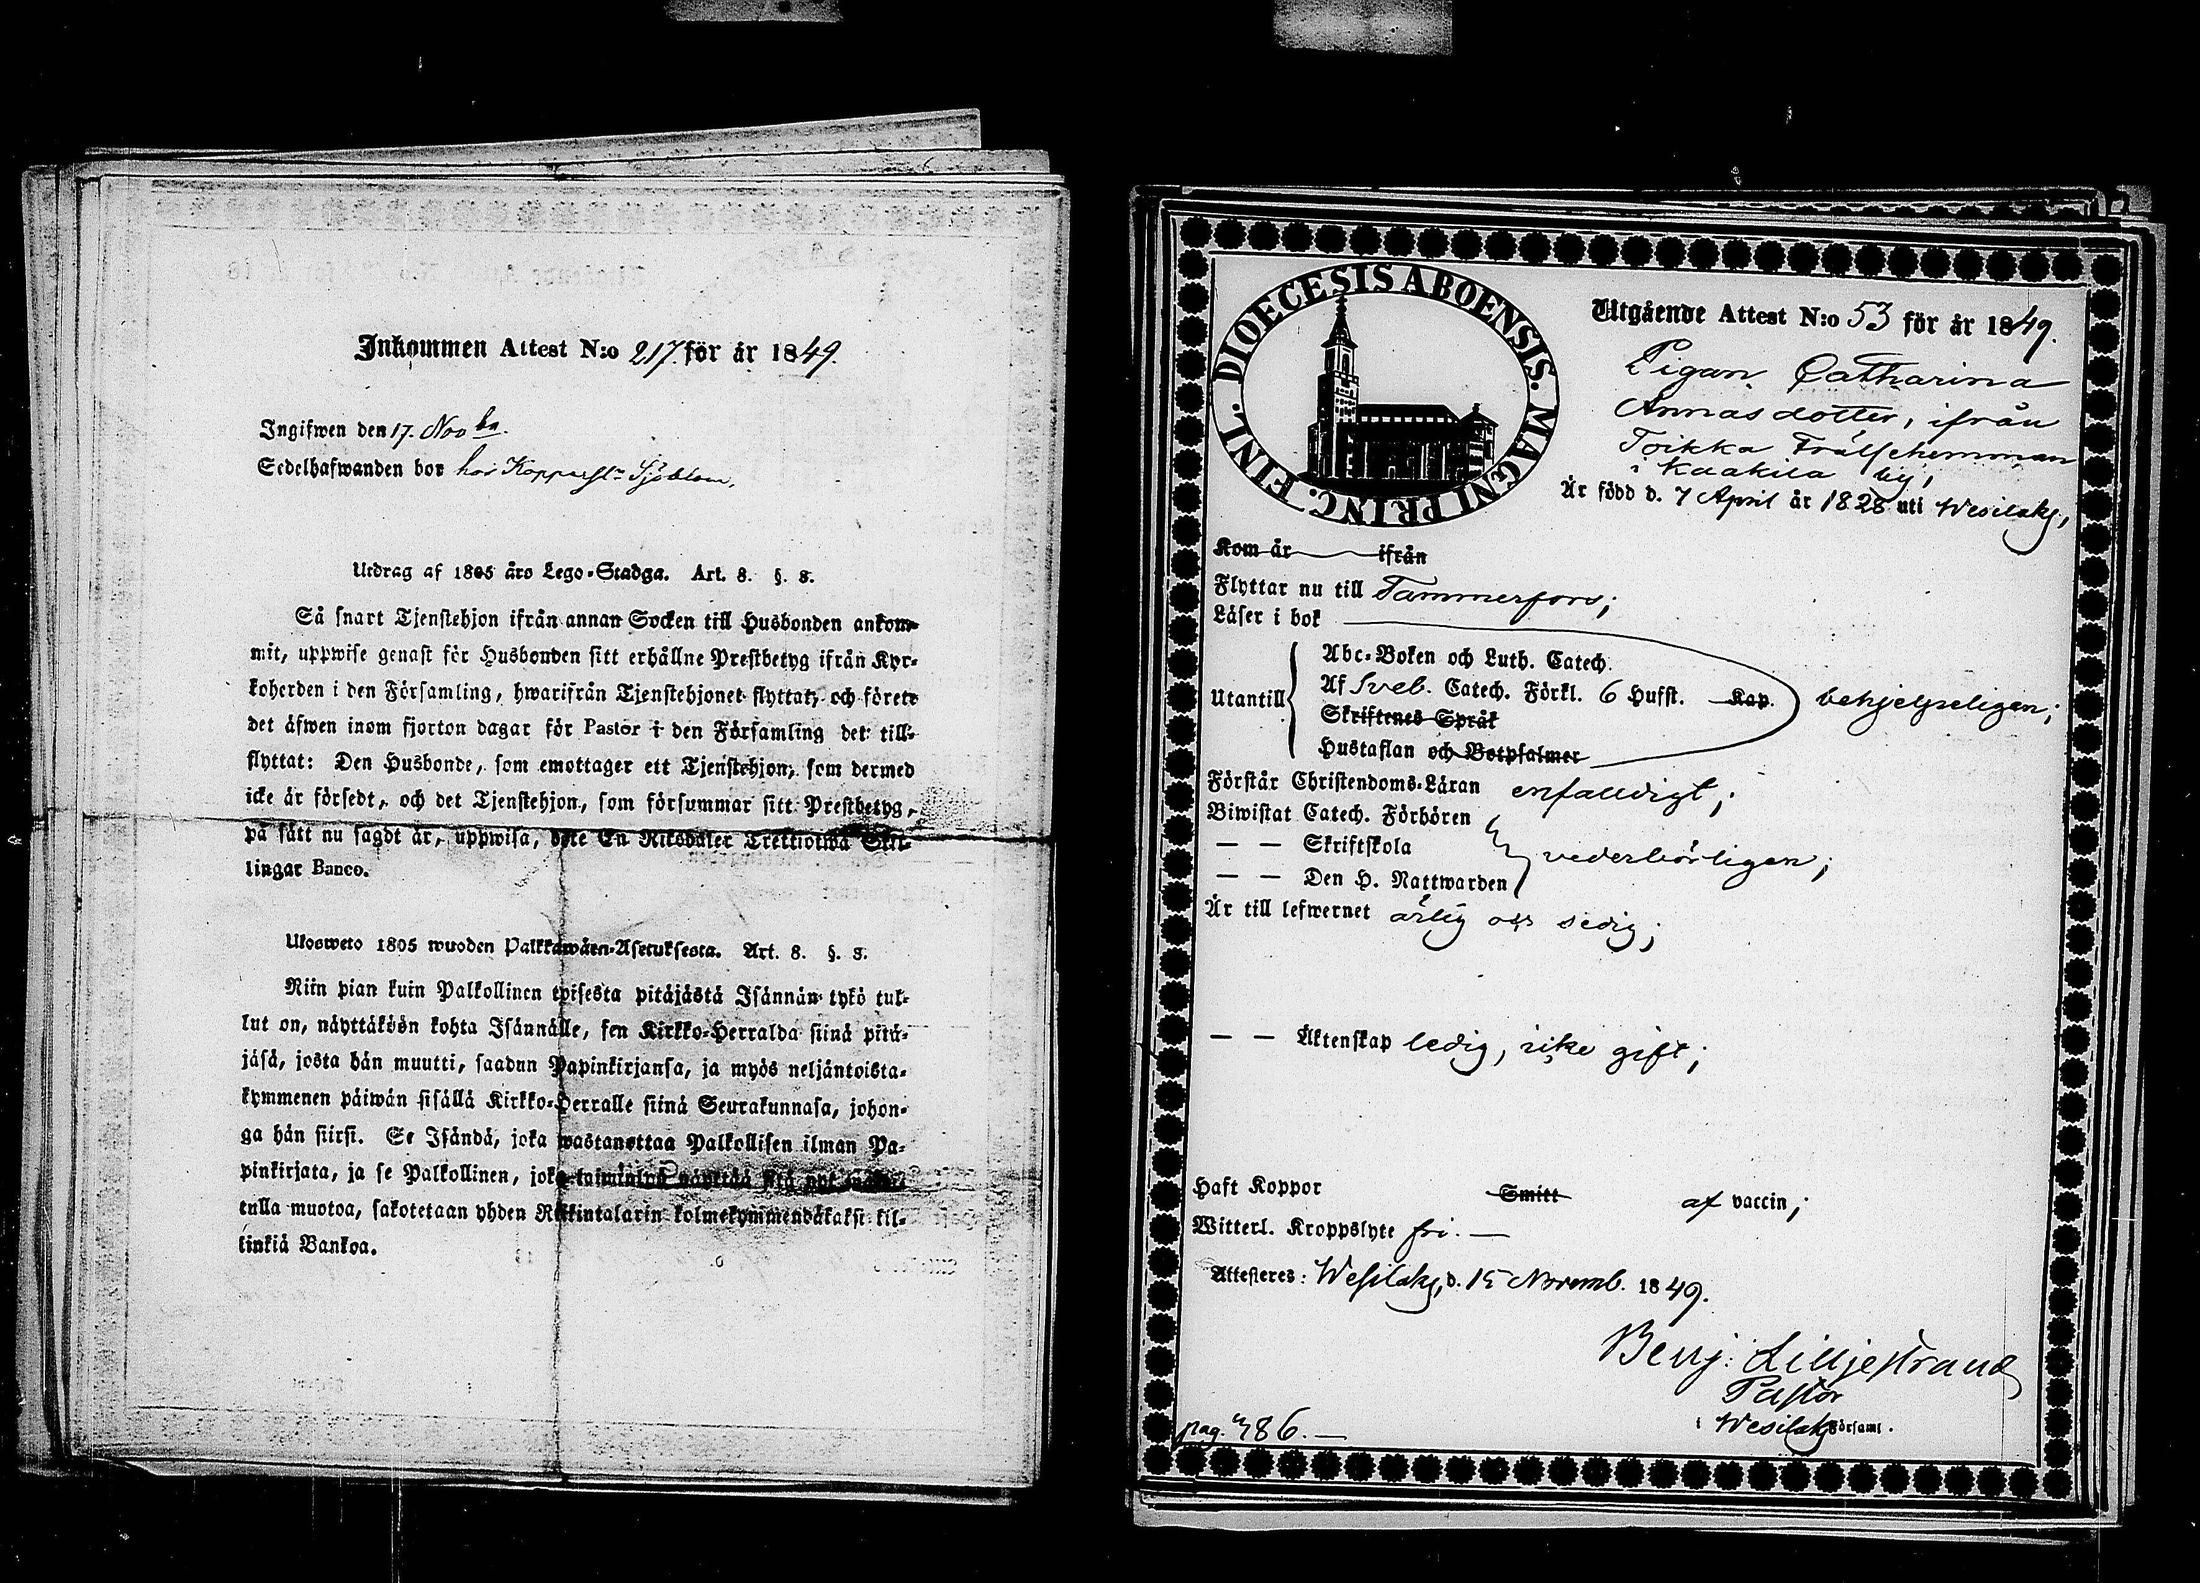 Inkommen Attest N:o 217. för år 1849.
Ingifwen den 17. Nov br.
Sedelhafwanden bor hos Kopparsl. Sjöblom.
Utdrag af 1805 års Lego-Stadga. Art. 8. §. 8.
Så snart Tjenstehjon ifrån annan Socken till Husbonden ankom-
mit, uppwise genast för Husbonden sitt erhållne Prestbetyg ifrån Kyr-
koherden i den Församling, hwarifrån Tjenstehjonet flyttat, och förete
det äfwen inom fjorton dagar för Pastor i den Församling det till-
flyttat: Den Husbonde, som emottager ett Tjenstehjon, som dermed
icke är försedt, och det Tjenstehjon, som försummar sitt Prestbetyg,
på sätt nu sagdt är, uppwisa, böte En Riksdaler Trettiotwå Skil-
lingar Banco.
Ulosweto 1805 wuoden Palkkawäen-Asetuksesta. Art. 8. §. 8.
Niin pian kuin Palkollinen toisesta pitäjästä Isännän tykö tul-
lut on, näyttäköön kohta Isännälle, sen Kirkko-Herralda siinä pitä-
jäsä, josta hän muutti, saadun Papinkirjansa, ja myös neljäntoista-
kymmenen päiwän sisällä Kirkko-Herralle siinä Seurakunnasa, johon-
ga hän siirsi. Se Isändä, joka wastanottaa Palkollisen ilman Pa-
pinkirjata, ja se Palkollinen, joka
tulla muotoa, sakotetaan yhden Riikintalarin kolmekymmendäkaksi kil-
linkiä Bankoa.
DIOECESIS ABOENSIS. MAGNI PRINC. FINL.
Utgående Attest N:o 53 för år 1849.
Pigan Catharina
Annasdotter, ifrån
Toikka Frälsehemman
i Kaakila by,
Är född d. 7 April år 1828 uti Wesilaks,
Kom år ifrån
Flyttar nu till Tammerfors;
Läser i bok
Utantill
Abc-Boken och Luth. Catech.
Af Sveb. Catech. Förkl. 6 Hufst. Kap.
Skriftenes Språk
Hustaflan och Botpsalmer
behjelpeligen;
Förstår Christendoms-Läran enfaldigt;
Biwistat Catech. Förhören
— — Skriftskola
— — Den H. Nattwarden
vederbörligen;
Är till lefwernet ärlig och sedig;
— — Äktenskap ledig, icke gift;
Haft Koppor Smitt af vaccin;
Witterl. Kroppslyte fri. —
Attesteres: Wesilaks, d. 15 Novemb. 1849.
Benj: Liljestrand
Pastor
i Wesilaks Församl.
pag. 486. —